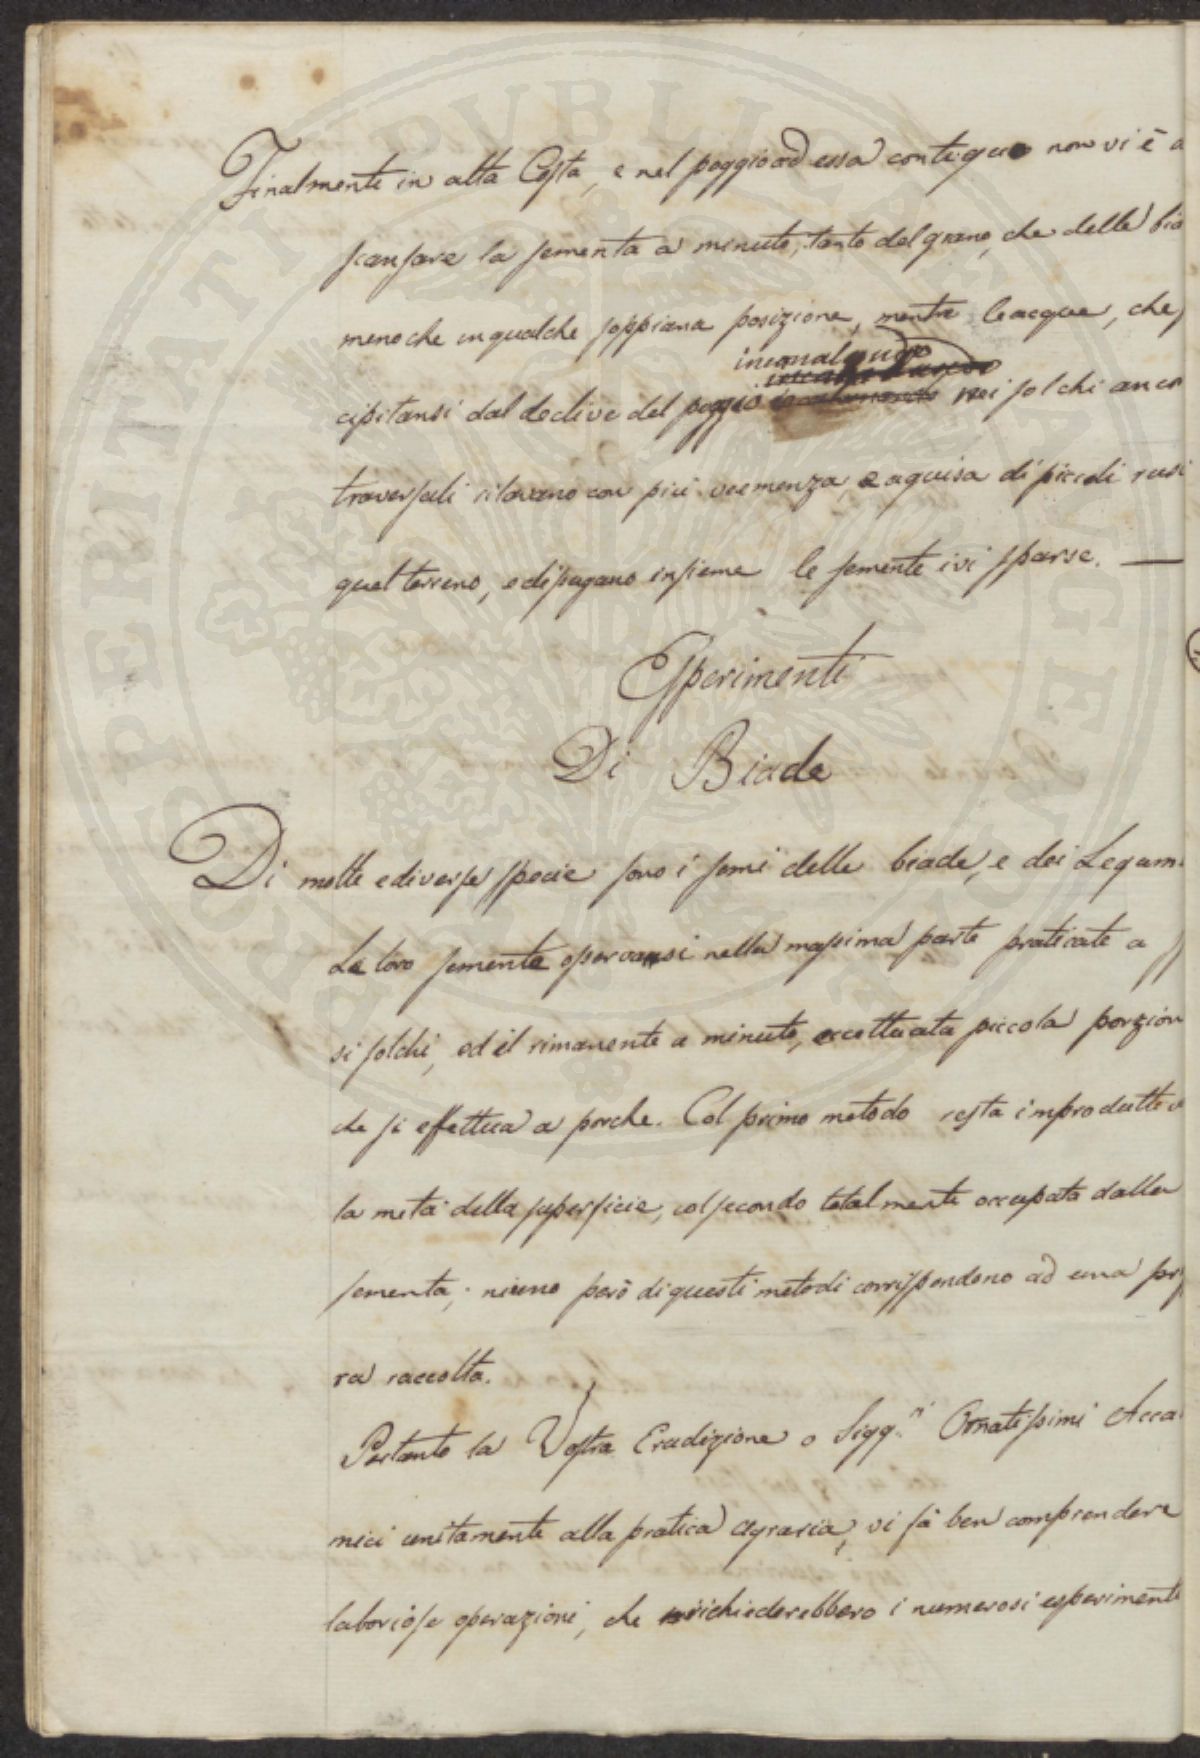 Finalmente in alta Costa, e nel poggio ad essa contiguo non vi è a
scansare la sementa a minuto, tanto del grano, che delle bia
meno che in qualche soppiana posizione, mentre le acque, che
cipitansi dal declive del poggio incanalandosi nei solchi anco
traversali rilavano con più veemenza, e a guisa di piccoli rusi
quel terreno, e dipagano insieme le semente ivi sparse. —
Esperimenti
Di Biade
Di molte e diverse specie sono i semi delle biade, e dei Legum
Le loro semente osservansi nella massima parte praticate a
si solchi, ed il rimanente a minuto, eccettuata piccola porzion
che si effettua a porche. Col primo metodo resta improduttiva
la metà della superficie, col secondo totalmente occupata dalla
sementa; niuno però di questi metodi corrispondono ad una
ra raccolta.
Pertanto la Vostra Erudizione o Sigg.ri Ornatissimi Acca
mici unitamente alla pratica agraria, vi fà ben comprendere
laboriose operazioni, che richiederebbero i numerosi esperimenti
PROSPERITATI PUBLICAE AUGENDAE